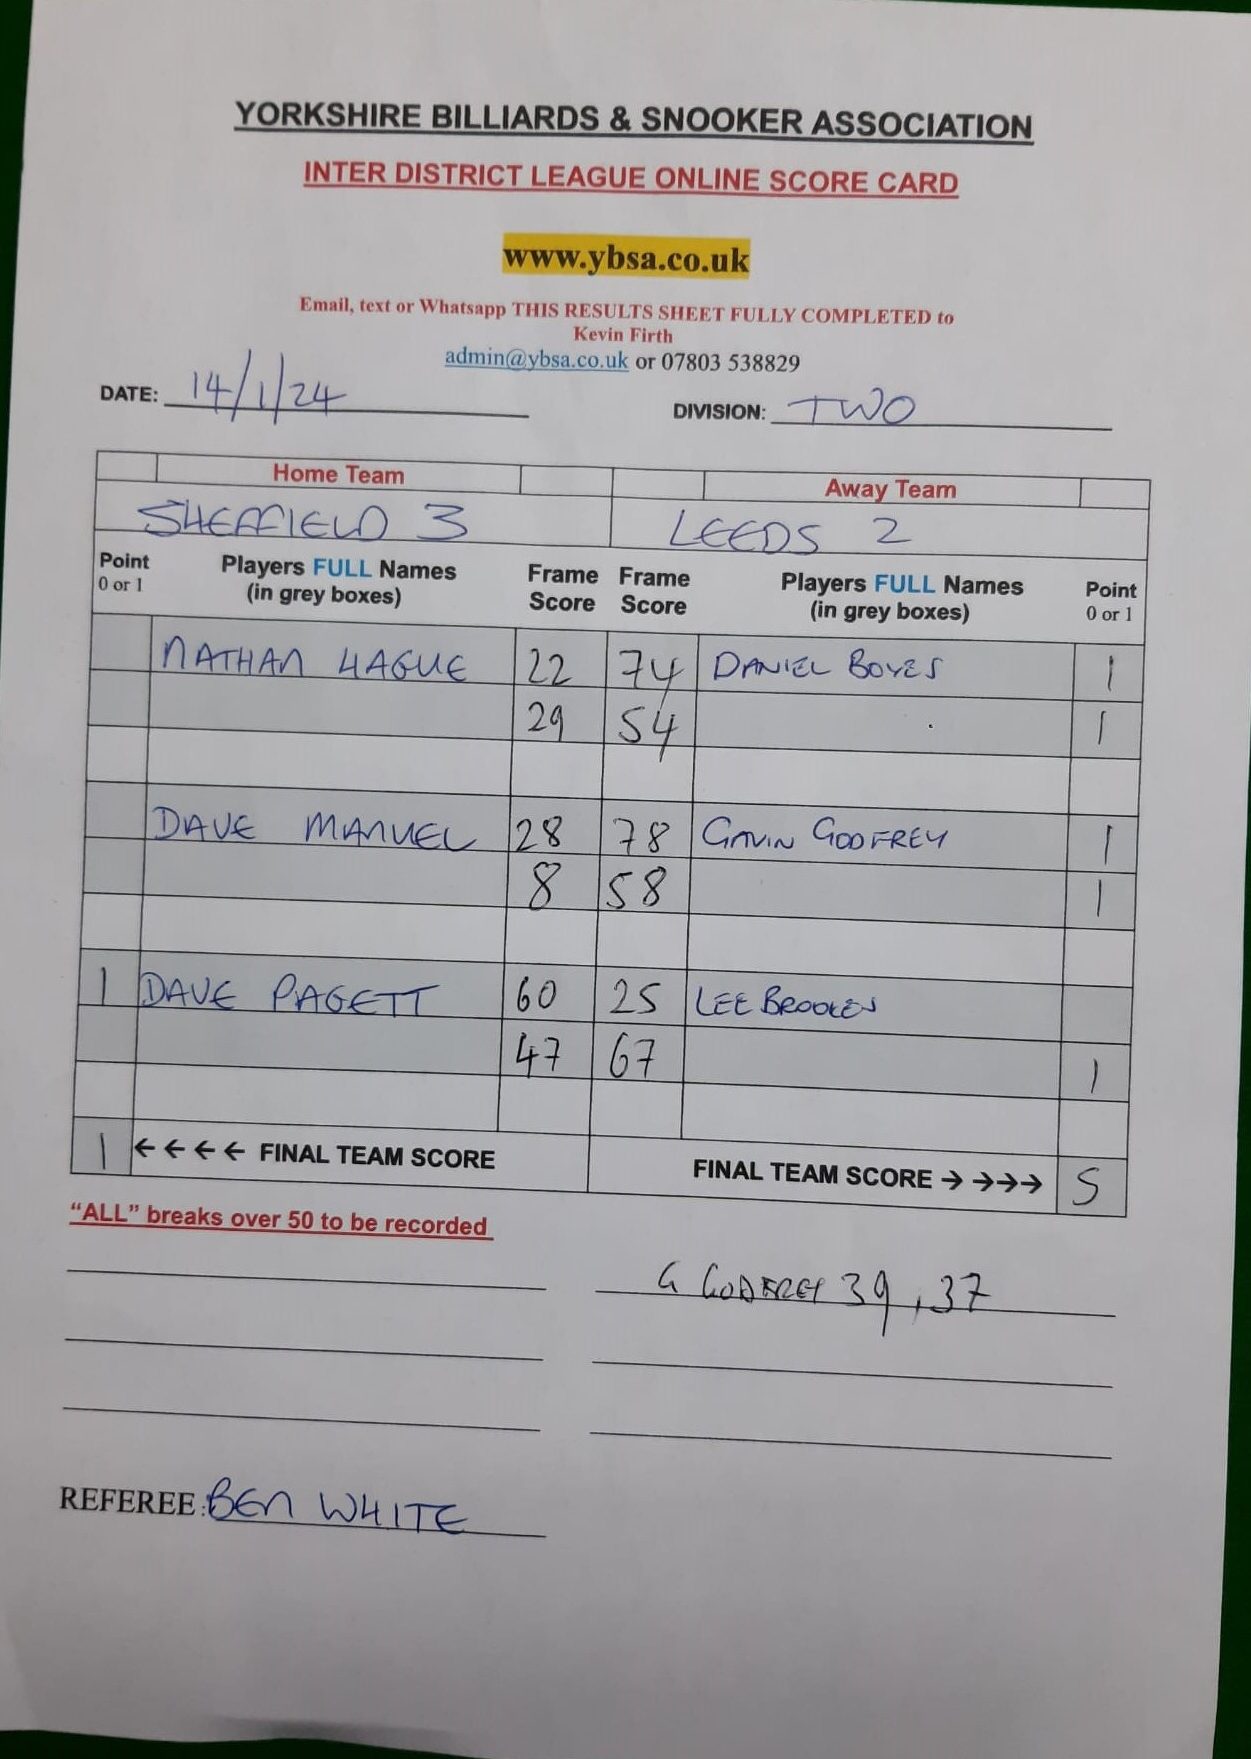 YORKSHIRE BILLIARDS & SNOOKER ASSOCIATION
INTER DISTRICT LEAGUE ONLINE SCORE CARD
www.ybsa.co.uk
Email, text or Whatsapp THIS RESULTS SHEET FULLY COMPLETED to
Kevin Firth
admin@ybsa.co.uk or 07803 538829
DATE: 14/1/24 DIVISION: TWO
Home Team Away Team
SHEFFIELD 3 LEEDS 2
Point Players FULL Names Frame Frame Players FULL Names Point
0 or 1 (in grey boxes) Score Score (in grey boxes) 0 or 1
NATHAN HAGUE 22 74 DANIEL BOYES 1
29 54 1
DAVE MANUEL 28 78 GAVIN GODFREY 1
8 58 1
1 DAVE PAGETT 60 25 LEE
47 67 1
1 ←←←← FINAL TEAM SCORE FINAL TEAM SCORE → →→→ 5
“ALL” breaks over 50 to be recorded
G GODFREY 39, 37
REFEREE: BEN WHITE